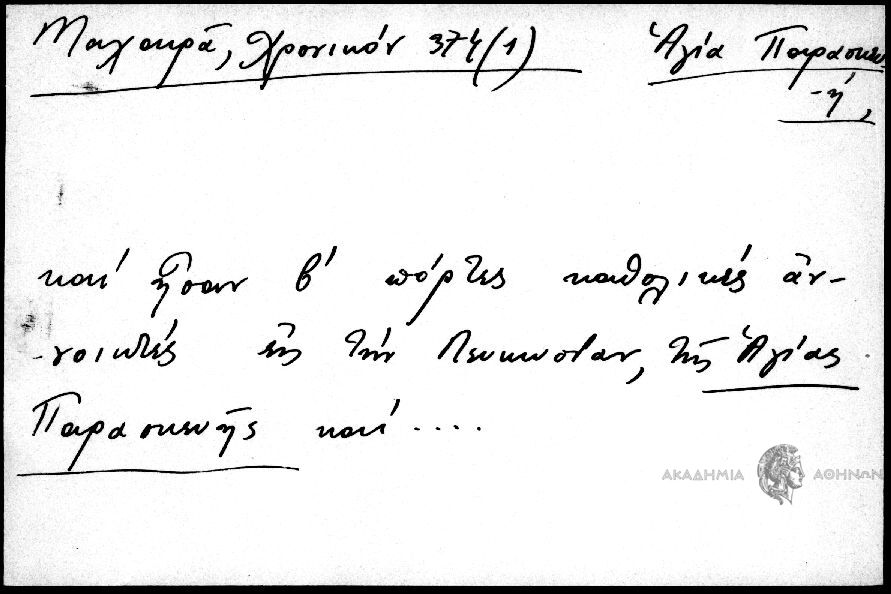 Μαχαιρᾶ, Χρονικόν 374(1) Ἁγία Παρασκευ-
-ή,
καί ἦσαν β' πόρτες καθολικές ἀν-
-νοικτές εἰς τήν Λευκωσίαν, τῆς Ἁγίας
Παρασκευῆς καί ....
ΑΚΑΔΗΜΙΑ ΑΘΗΝΩΝ